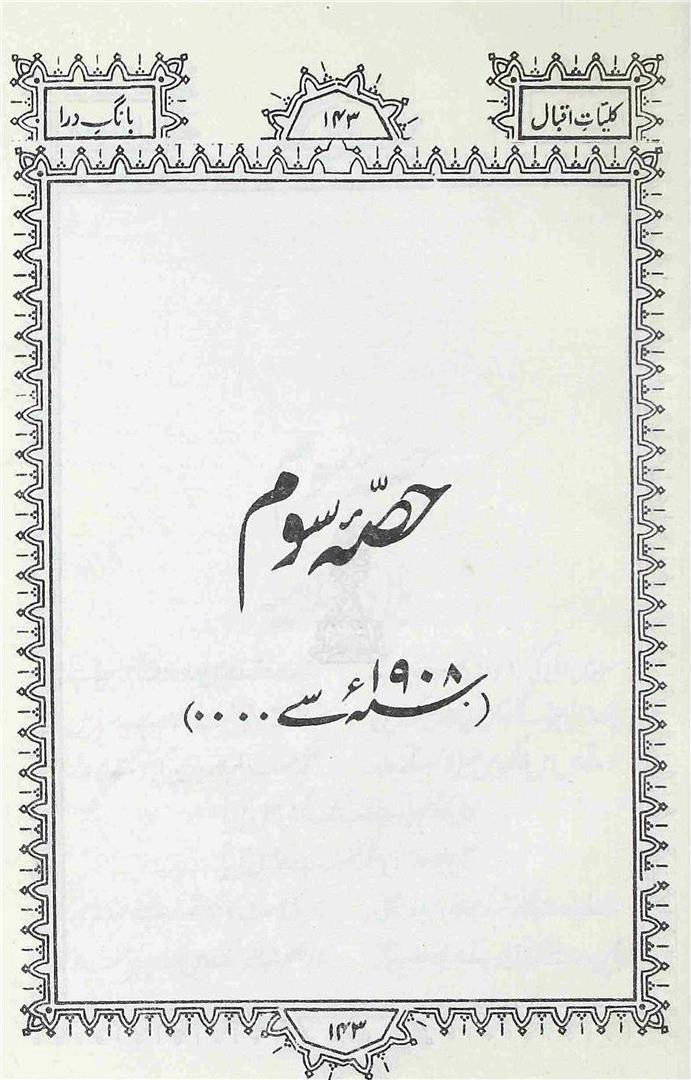 کلیّاتِ اقبال
۱۴۳
بانگِ درا
حصّۂ سوم
(۱۹۰۸ء سے ....)
۱۴۳